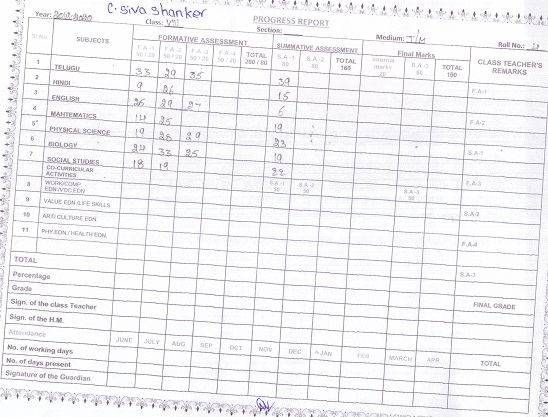 C. Siva Shanker
PROGRESS REPORT
Year: 2019-2020 Class: VIII Section: Medium: T/M Roll No.:
Sl.No. SUBJECTS FORMATIVE ASSESSMENT SUMMATIVE ASSESSMENT Final Marks CLASS TEACHER'S REMARKS
F.A -1 50 / 20 F.A -2 50 / 20 F.A -3 50 / 20 F.A -4 50 / 20 TOTAL 200 / 80 S.A -1 80 S.A -2 80 TOTAL 160 Internal marks 20 S.A -3 80 TOTAL 100
1 TELUGU 33 29 35 39 F.A-1
2 HINDI 9 26 15
3 ENGLISH 25 29 27 6 F.A-2
4 MAHTEMATICS 14 25 19
5 PHYSICAL SCIENCE 19 28 29 23 S.A-1
6 BIOLOGY 24 33 25 19
7 SOCIAL STUDIES 18 19 22
CO-CURRICULAR ACTIVITIES S.A -1 50 S.A -2 50 S.A -3 50 F.A-3
8 WORK/COMP. EDN./VOC.EDN
9 VALUE EDN./LIFE SKILLS S.A-2
10 ART/ CULTURE EDN
11 PHY.EDN./ HEALTH EDN. F.A-4
TOTAL S.A-3
Percentage
Grade FINAL GRADE
Sign. of the class Teacher
Sign. of the H.M.
Attendance JUNE JULY AUG SEP OCT NOV DEC JAN FEB MARCH APR TOTAL
No. of working days
No. of days present
Signature of the Guardian